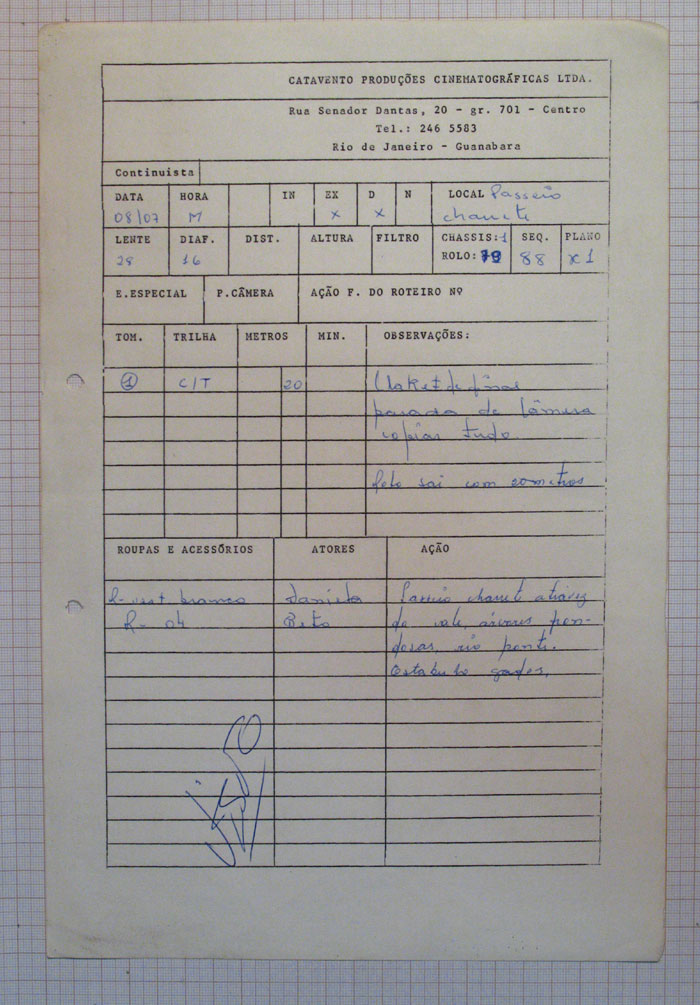 CATAVENTO PRODUÇÕES CINEMATOGRÁFICAS LTDA.
Rua Senador Dantas, 20 - gr. 701 - Centro
Tel.: 246 5583
Rio de Janeiro - Guanabara
Continuista
DATA HORA IN EX D N LOCAL Passeio
08/07 M x x
LENTE DIAF. DIST. ALTURA FILTRO CHASSIS: 1 SEQ. PLANO
28 16 ROLO: 88 x1
E.ESPECIAL P.CÂMERA AÇÃO F. DO ROTEIRO Nº
TOM. TRILHA METROS MIN. OBSERVAÇÕES:
1 C/T 20
parada de
copiar tudo
sai com
ROUPAS E ACESSÓRIOS ATORES AÇÃO
R- branco Daniela Passeio
R- 04 Beto de vale, árvores fron-
dosas, rio ponte.
Estabulo gados.